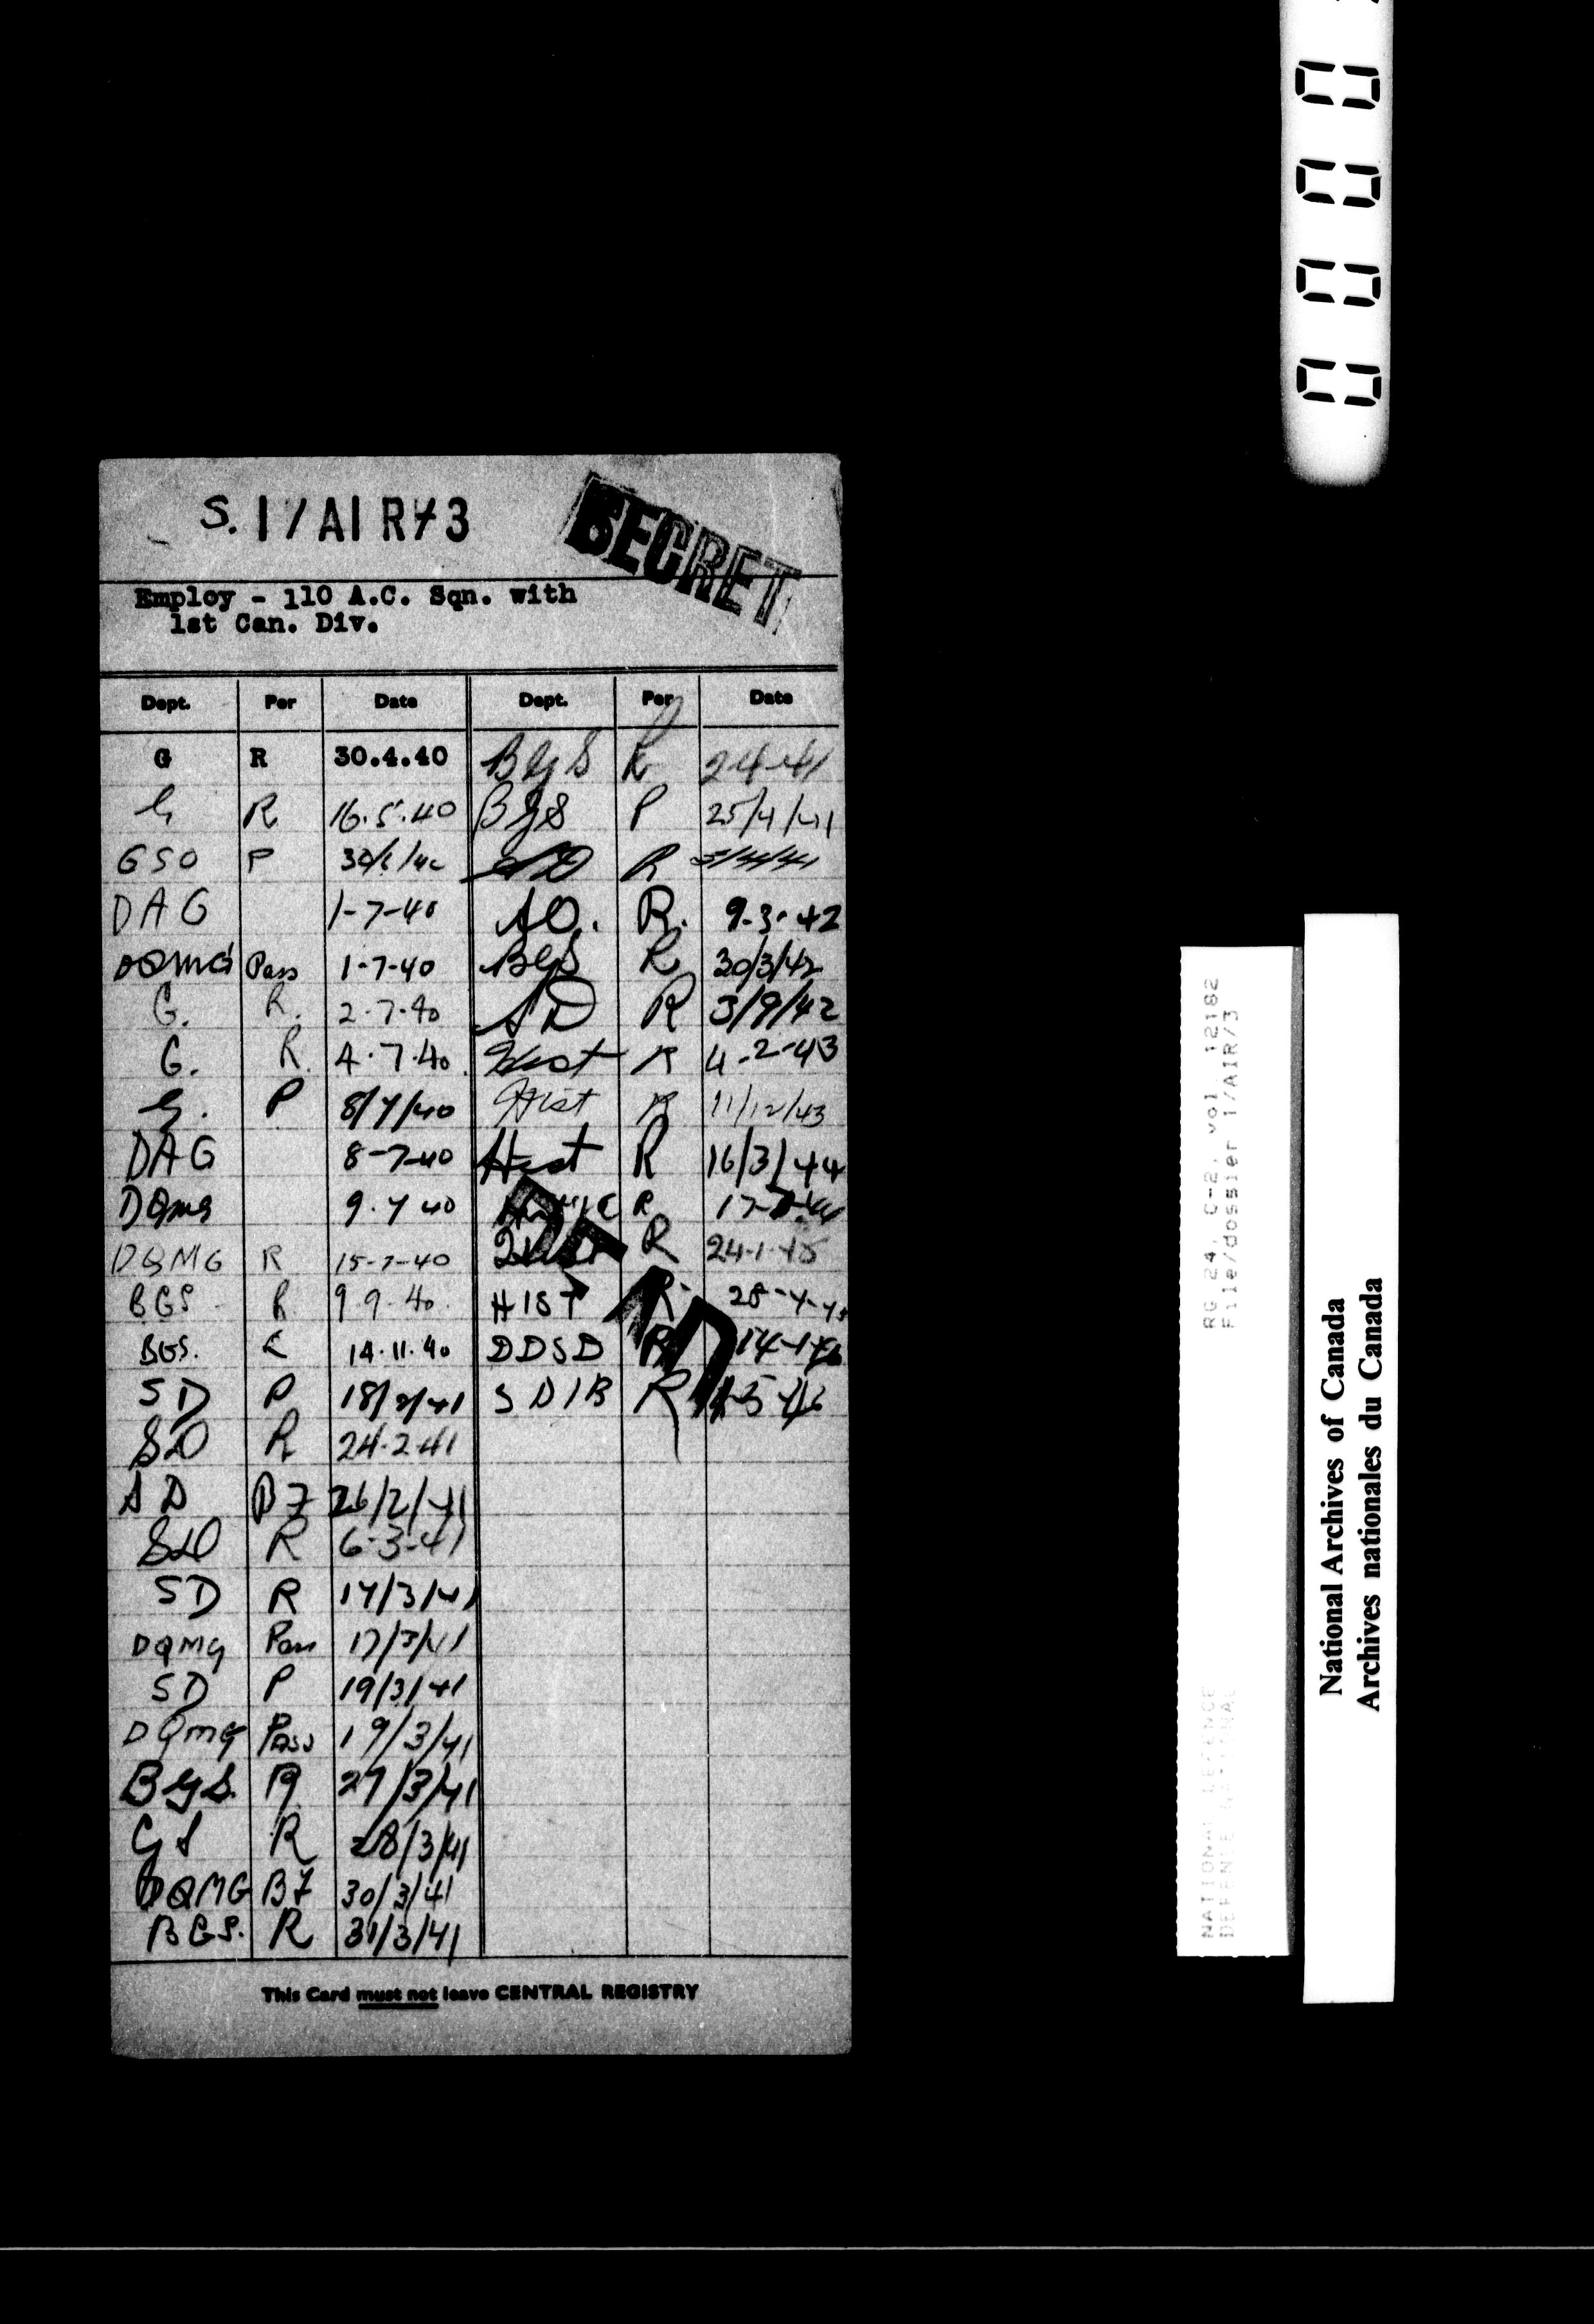 S. 1/AIR/3
SECRET
Employ - 110 A.C. Sqn. with
1st Can. Div.
Dept. Per Date Dept. Per Date
G R 30.4.40 BGS R 2-4-41
G R 16.5.40 BGS P 25/4/41
GSO P SD R
DAG 1-7-40 SD. R. 9.3.42
DQMG Pass 1-7-40 BGS R 30/3/42
G. R. 2.7.40 SD R 3/9/42
G. R. 4.7.40 Hist R 4-2-43
G. P 8/7/40 Hist R 11/12/43
DAG 8-7-40 Hist R 16/3/44
DQMG 9.7 40 R
DQMG R 15-7-40 R 24-1-45
BGS R 9.9.40. HIST R
BGS. R 14.11.40 DDSD R
SD P 18/2/41 SD1B R
SD R 24.2.41
SD BF 26/2/41
SD R 6-3-41
SD R 17/3/41
DQMG Pass 17/3/41
SD P 19/3/41
DQMG Pass 19/3/41
BGS. R 27/3/41
GS R 28/3/41
DQMG BF 30/3/41
BGS. R 31/3/41
DEAD
This Card must not leave CENTRAL REGISTRY
0000
RG 24, C-2, vol. 12182
File/dossier 1/AIR/3
NATIONAL DEFENCE
DEFENSE NATIONALE
National Archives of Canada
Archives nationales du Canada